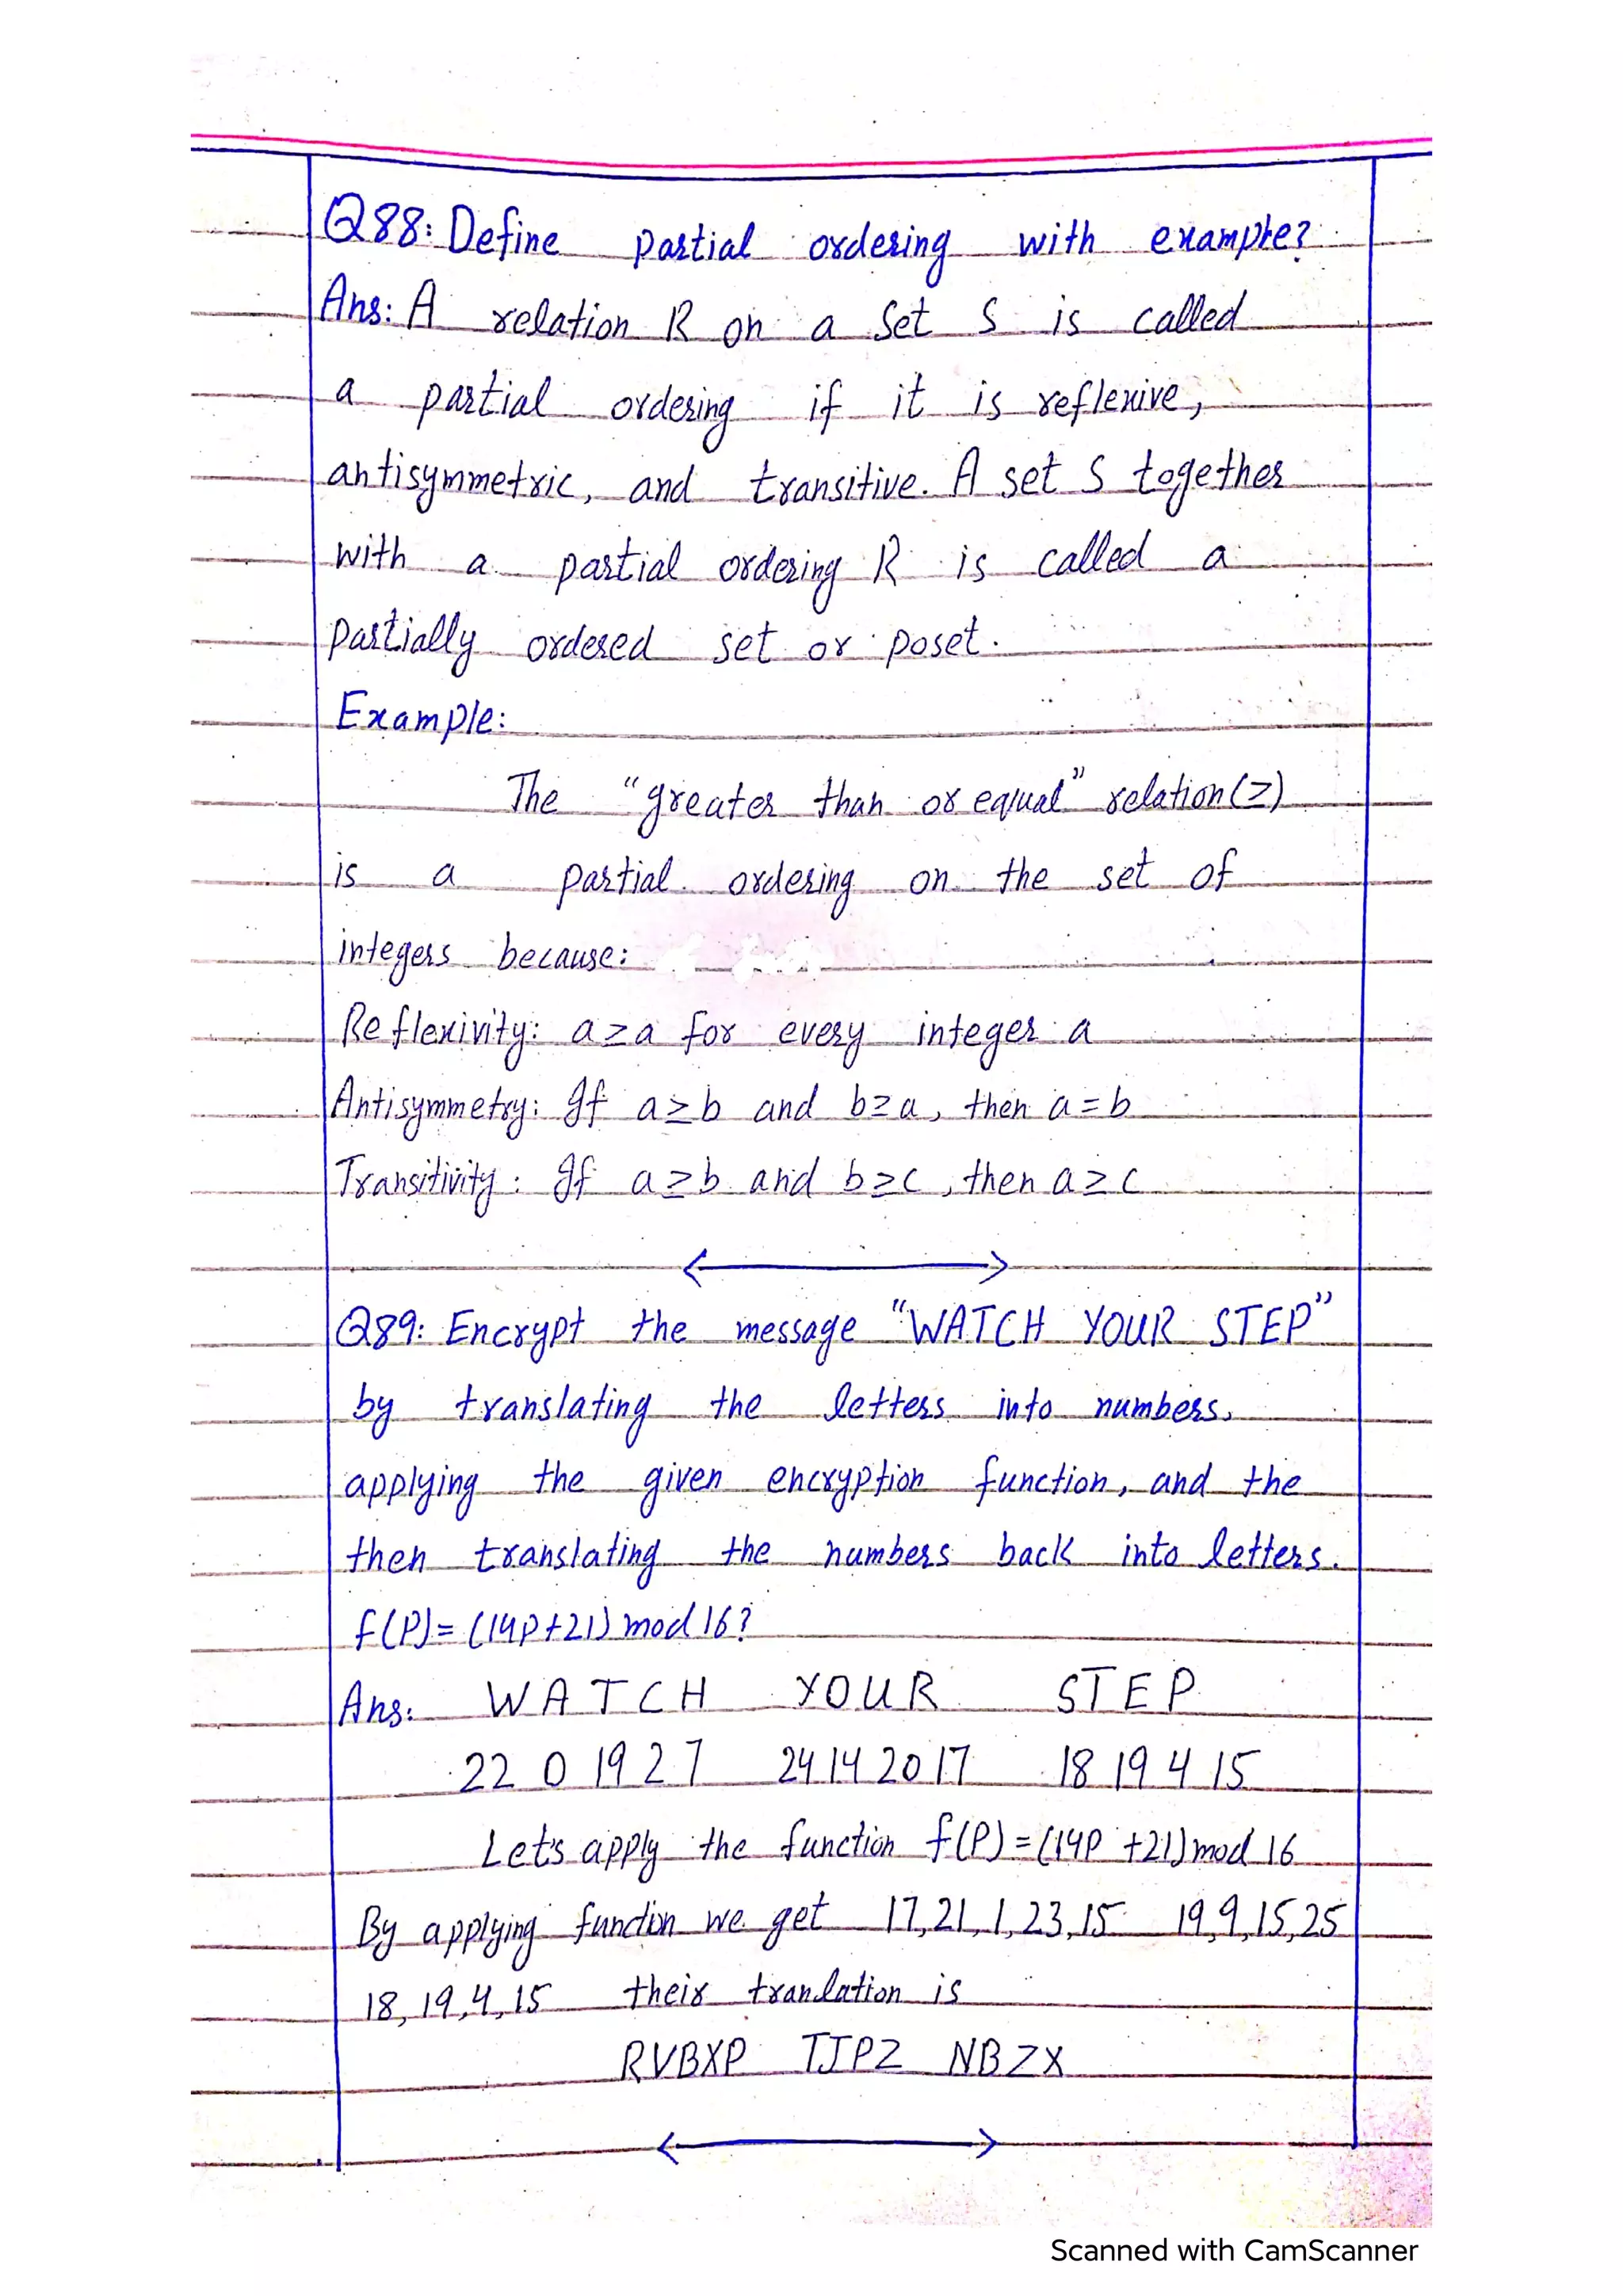 Q88: Define partial ordering with example?
Ans: A relation R on a set S is called
a partial ordering if it is reflexive,
antisymmetric, and transitive. A set S together
with a partial ordering R is called a
partially ordered set or poset.
Example:
The "greater than or equal" relation (≥)
is a partial ordering on the set of
integers because:
Reflexivity: a≥a for every integer a
Antisymmetry: If a≥b and b≥a, then a=b
Transitivity: If a≥b and b≥c, then a≥c
Q89: Encrypt the message "WATCH YOUR STEP"
by translating the letters into numbers,
applying the given encryption function, and the
then translating the numbers back into letters.
f(P)= (14p+21) mod 16?
Ans: WATCH YOUR STEP
22 0 19 2 7 24 14 20 17 18 19 4 15
Lets apply the function f(P)=(14p +21) mod 16
By applying function we get 17,21,1,23,15 19,9,15,25
18,19,4,15 their tranlation is
RVBXP TJPZ NBZX
Scanned with CamScanner